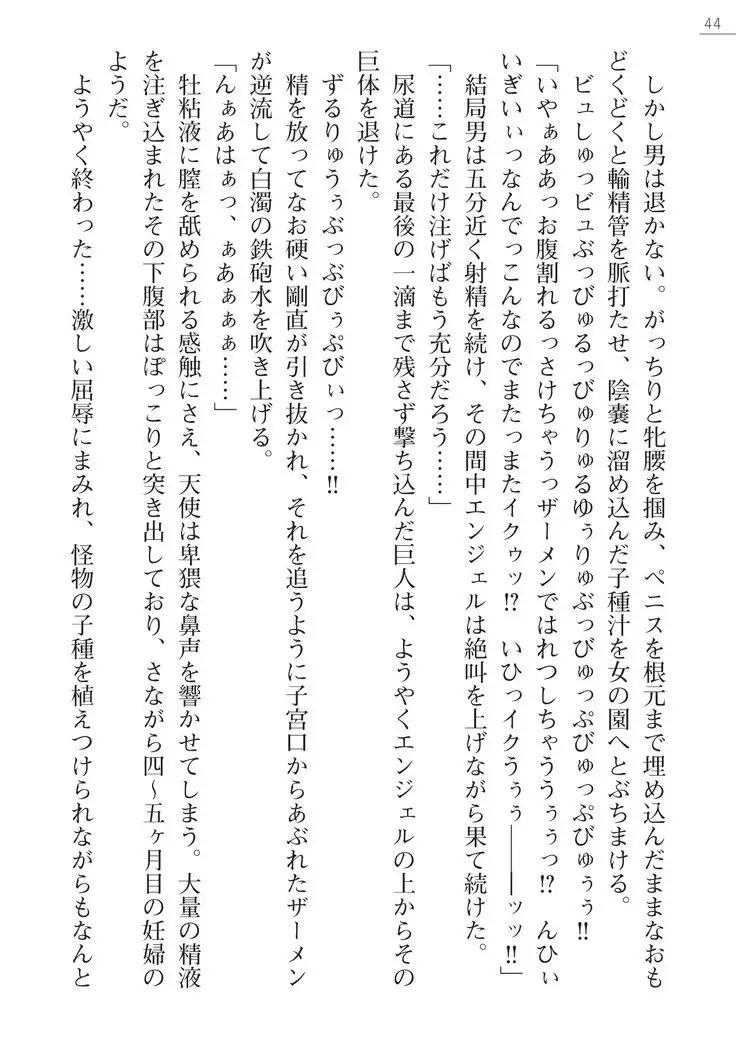 44
しかし男は退かない。がっちりと牝腰を掴み、ペニスを根元まで埋め込んだままなおも
どくどくと輸精管を脈打たせ、陰嚢に溜め込んだ子種汁を女の園へとぶちまける。
ビュしゅっビュぶっびゅるっびゅりゅるゆぅりゅぶっびゅっぷびゅっぷびゅぅぅ!!
「いやぁああっお腹割れるっさけちゃうっザーメンではれつしちゃううぅぅっ!? んひぃ
いぎいぃっなんでっこんなのでまたっまたイクゥッ!? いひっイクうぅぅ――ッッ!!」
結局男は五分近く射精を続け、その間中エンジェルは絶叫を上げながら果て続けた。
「……これだけ注げばもう充分だろう……」
尿道にある最後の一滴まで残さず撃ち込んだ巨人は、ようやくエンジェルの上からその
巨体を退けた。
ずるりゅうぅぶっぶびぅぷびぃっ……!!
精を放ってなお硬い剛直が引き抜かれ、それを追うように子宮口からあぶれたザーメン
が逆流して白濁の鉄砲水を吹き上げる。
「んぁあはぁっ、ぁあぁぁぁ……」
牡粘液に膣を舐められる感触にさえ、天使は卑猥な鼻声を響かせてしまう。大量の精液
を注ぎ込まれたその下腹部はぽっこりと突き出しており、さながら四～五ヶ月目の妊婦の
ようだ。
ようやく終わった……激しい屈辱にまみれ、怪物の子種を植えつけられながらもなんと